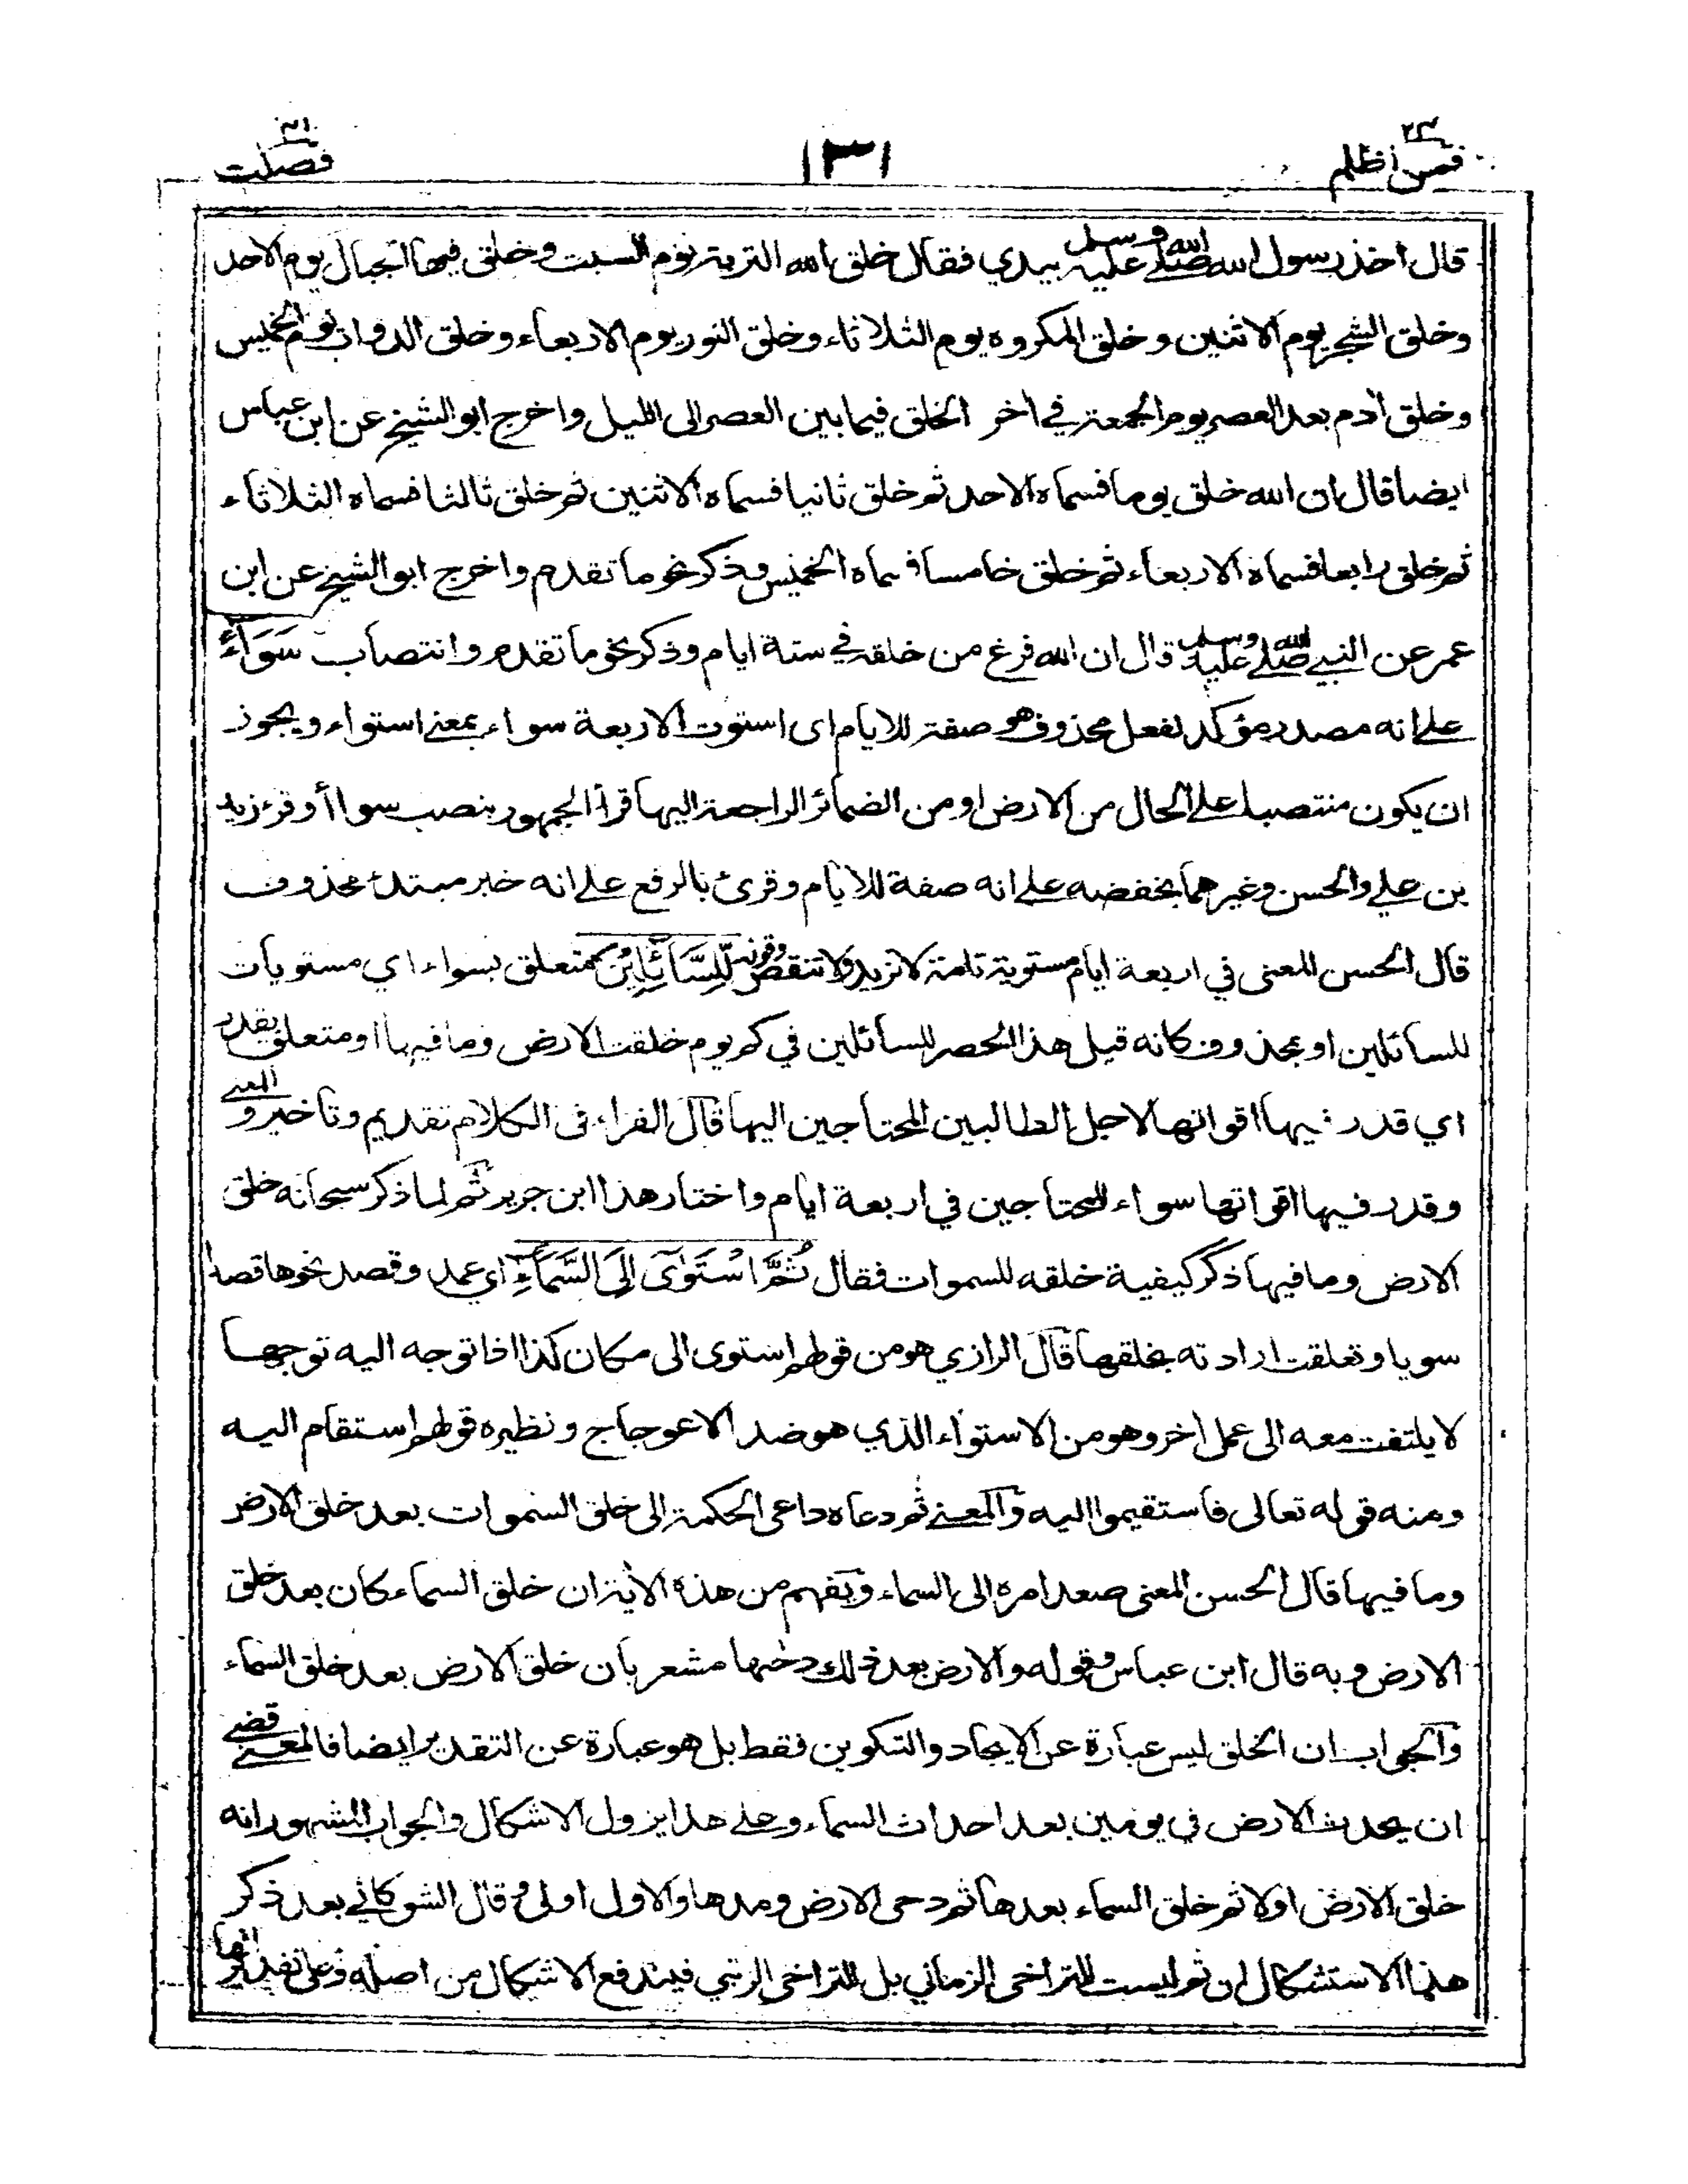 فمن اظلم ٢٤
١٣١
فصلت ٤١
قال اخذ رسول الله صلى الله عليه وسلم بيدي فقال خلق الله التربة يوم السبت وخلق فيها الجبال يوم الاحد
وخلق الشجر يوم الاثنين وخلق المكروه يوم الثلاثاء وخلق النور يوم الاربعاء وخلق الدواب يوم الخميس
وخلق أدم بعد العصر يوم الجمعة في أخر الخلق فيما بين العصر الى الليل واخرج ابو الشيخ عن ابن عباس
ايضا قال ان الله خلق يوما فسماه الاحد ثم خلق ثانيا فسماه الاثنين ثم خلق ثالثا فسماه الثلاثاء
ثم خلق رابعا فسماه الاربعاء ثم خلق خامسا فسماه الخميس وذكر نحو ما تقدم واخرج ابو الشيخ عن ابن
عمر عن النبي صلى الله عليه وسلم قال ان الله فرغ من خلقه في ستة ايام وذكر نحو ما تقدم وانتصاب سَوَآءً
على انه مصدر مؤكد لفعل محذوف هو صفة للايام اى استوت الاربعة سواء بمعنى استواء ويجوز
ان يكون منتصبا على الحال من الارض او من الضمائر الراجعة اليها قرأ الجمهور بنصب سواأ وقرء زيد
بن علي والحسن وغيرهما بخفضه على انه صفة للايام وقرئ بالرفع على انه خبر مبتدء محذوف
قال الحسن المعنى في اربعة ايام مستوية تامة لا تزيد ولا تنقص وقوله لِّلسَّآئِلِيْنَ متعلق بسواء اي مستويات
للسائلين او بمحذوف كانه قيل هذا الحصر للسائلين في كم يوم خلقت الارض وما فيها او متعلق بقدر
اي قدر فيها اقواتها لاجل الطالبين المحتاجين اليها قال الفراء فى الكلام تقديم وتاخير و المعنى
وقدر فيها اقواتها سواء للمحتاجين في اربعة ايام واختار هذا ابن جرير ثم لما ذكر سبحانه خلق
الارض وما فيها ذكر كيفية خلقه للسموات فقال ثُمَّ اسْتَوٰىٓ اِلَى السَّمَآءِ اي عمد وقصد نحوها قصدا
سويا وتعلقت ارادته بخلقها قال الرازي هو من قولهم استوى الى مكان كذا اذا توجه اليه توجها
لا يلتفت معه الى عمل اخر وهو من الاستواء الذي هو ضد الاعوجاج ونظيره قولهم استقام اليه
ومنه قوله تعالى فاستقيموا اليه والمعنى ثم دعاه داعى الحكمة الى خلق السموات بعد خلق الارض
وما فيها قال الحسن المعنى صعد امره الى السماء ويفهم من هذه الاية ان خلق السماء كان بعد خلق
الارض وبه قال ابن عباس وقوله والارض بعد ذلك دحٰها مشعر بان خلق الارض بعد خلق السماء
والجواب ان الخلق ليس عبارة عن الايجاد والتكوين فقط بل هو عبارة عن التقدير ايضا فالمعنى قضى
ان يحدث الارض في يومين بعد احداث السماء وعلى هذا يزول الاشكال والجواب المشهور انه
خلق الارض اولا ثم خلق السماء بعدها ثم دحى الارض ومدها والاول اولى وقال الشوكاني بعد ذكر
هذا الاستشكال ان ثم ليست للتراخى الزماني بل للتراخى الرتبي فيندفع الاشكال من اصله وعلى تقدير انها